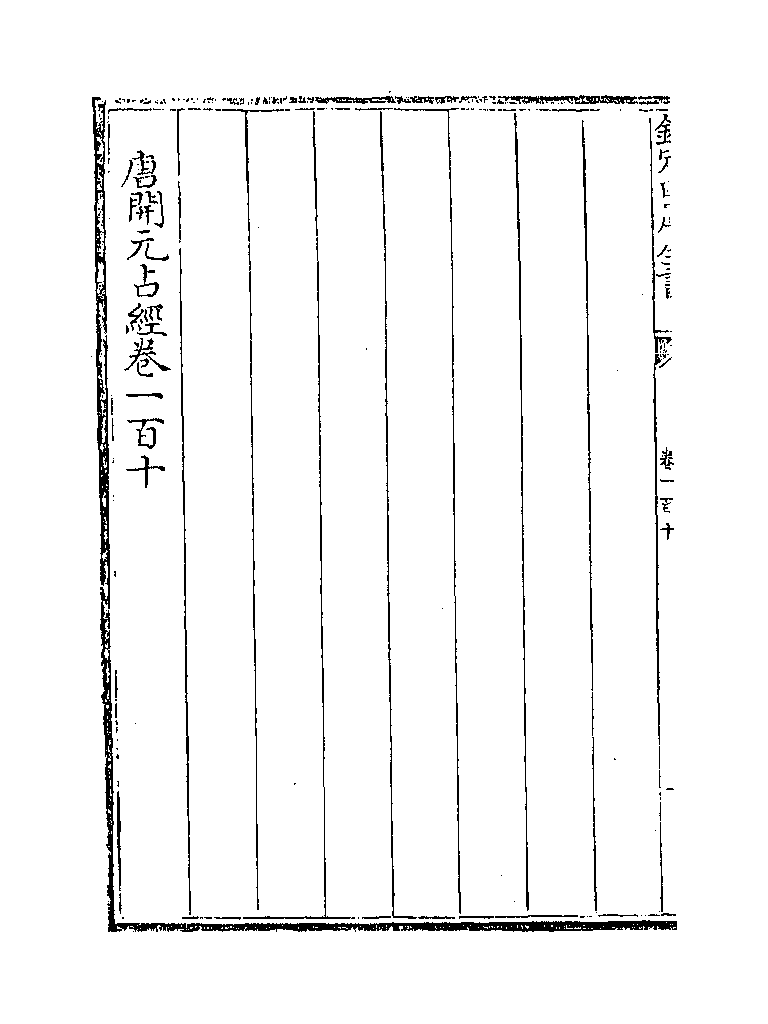 欽定四庫全書
卷一百十
唐開元占經卷一百十